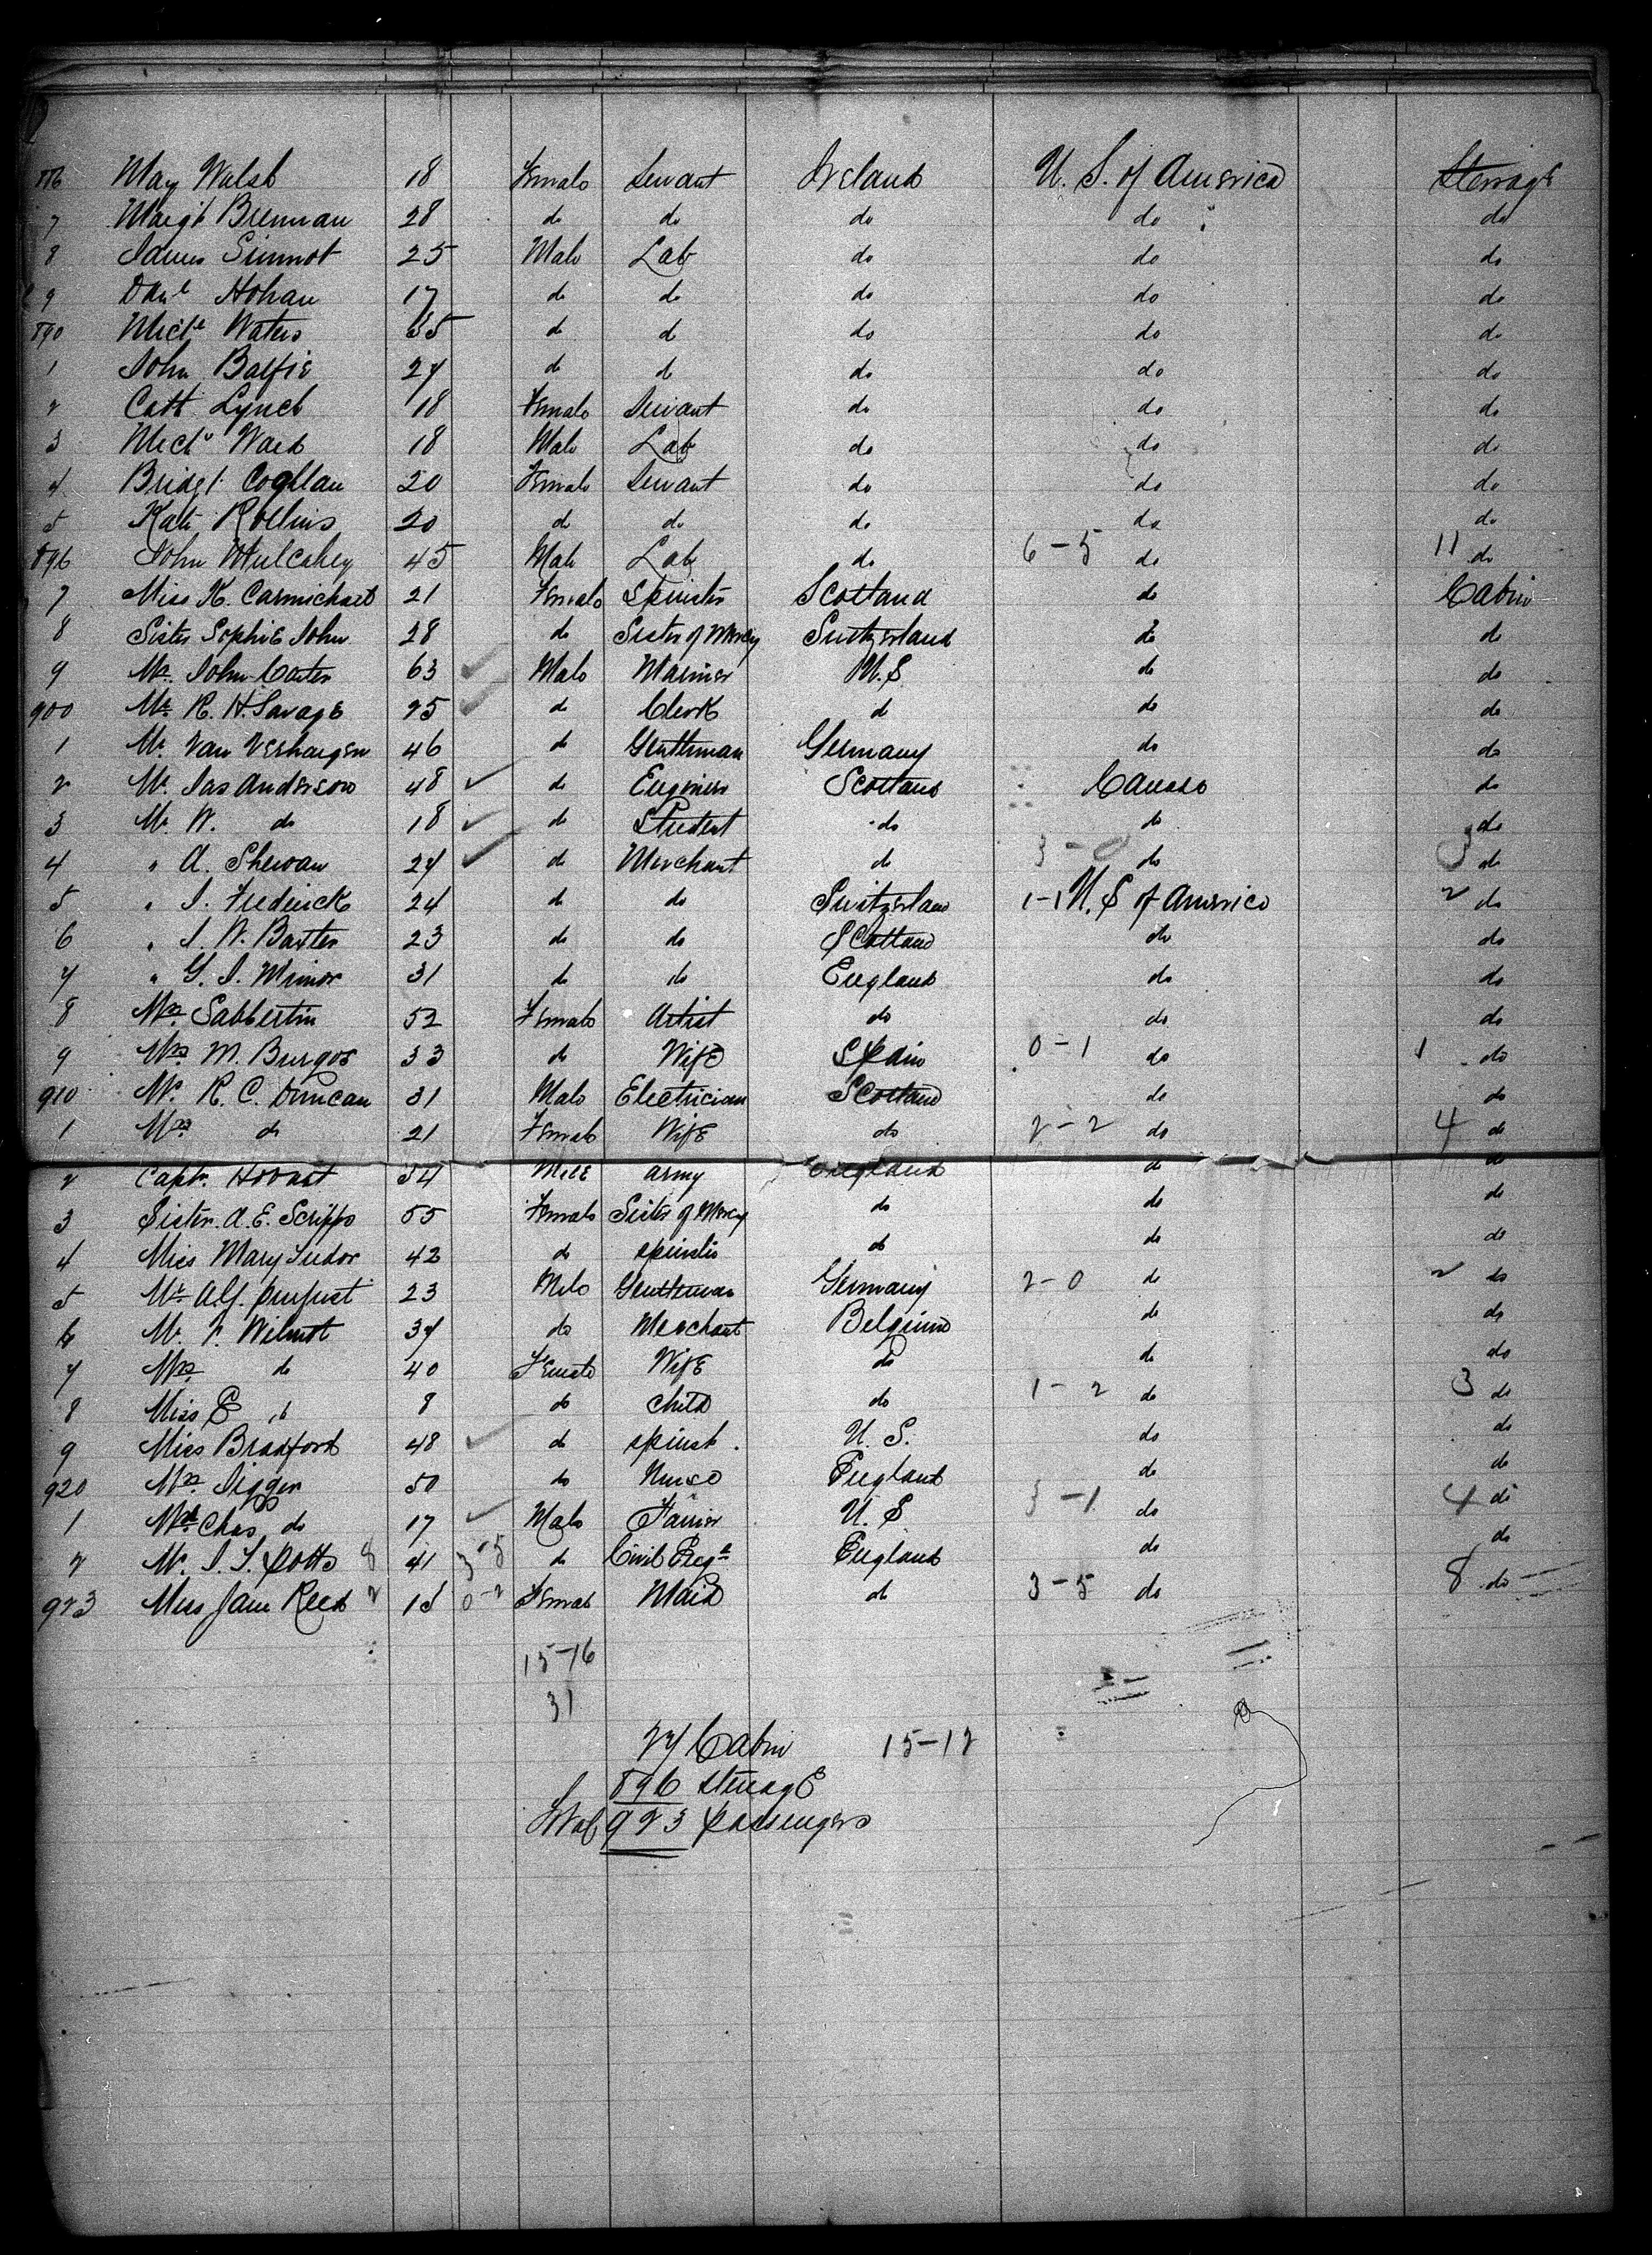 886 May Walsh 18 Female Servant Ireland U. S. of America Steerage
7 Margt Brennan 28 do do do do do
8 James Sinnot 25 Male Lab do do do
9 Danl Hohan 17 do do do do do
890 Michl Waters 35 do do do do do
1 John Balfie 27 do do do do do
2 Cath Lynch 18 Female Servant do do do
3 Michl Ward 18 Male Lab do do do
4 Bridgt Coghlan 20 Female Servant do do do
5 Kate Rollins 20 do do do do do
896 John Mulcahey 45 Male Lab do 6-5 do 11 do
7 Miss K. Carmichael 21 Female Spinster Scotland do Cabin
8 Sister Sophie John 28 do Sister of Mercy Switzerland do do
9 Mr. John Carter 63 ✓ Male Mariner U.S. do do
900 Mr R. H. Savage 25 ✓ do Clerk do do do
1 Mr. Van Verhaegen 46 do Gentleman Germany do do
2 Mr. Jas Anderson 48 ✓ do Engineer Scotland Canada do
3 Mr W. do 18 ✓ do Student do do do
4 " A. Shewan 27 ✓ do Merchant do 3-0 do 3 do
5 " J. Frederick 24 do do Switzerland 1-1 U. S of America 2 do
6 " J. W. Baxter 23 do do Scotland do do
7 " G. J. Minor 31 do do England do do
8 Mrs Sabbertin 52 Female Artist do do do
9 Mrs M. Burgos 33 do Wife Spain 0-1 do 1 do
910 Mr. R. C. Duncan 31 Male Electrician Scotland do do
1 Mrs do 21 Female Wife do 2-2 do 4 do
2 Capt. Hobart 54 Male Army England do do
3 Sister A. E. Scripps 55 Female Sister of Mercy do do do
4 Miss Mary Tudor 42 do spinster do do do
5 Mr 23 Male Gentleman Germany 2-0 do 2 do
6 Mr. V. Wilmot 37 do Merchant Belgium do do
7 Mrs do 40 Female Wife do do do
8 Miss E do 8 do child do 1-2 do 3 do
9 Miss Bradford 48 ✓ do spinst. U. S. do do
920 Mrs Digger 50 do Nurse England do do
1 Chas do 17 ✓ Male U. S 3-1 do 4 do
2 Mr. J. T. Potts 8 41 3-5 do Civil Engr England do do
923 Miss Jane Reed 2 18 0-2 Female Maid do 3-5 do 8 do
15-16
31
27 Cabin 15-12
896 Steerage
Total 923 passengers